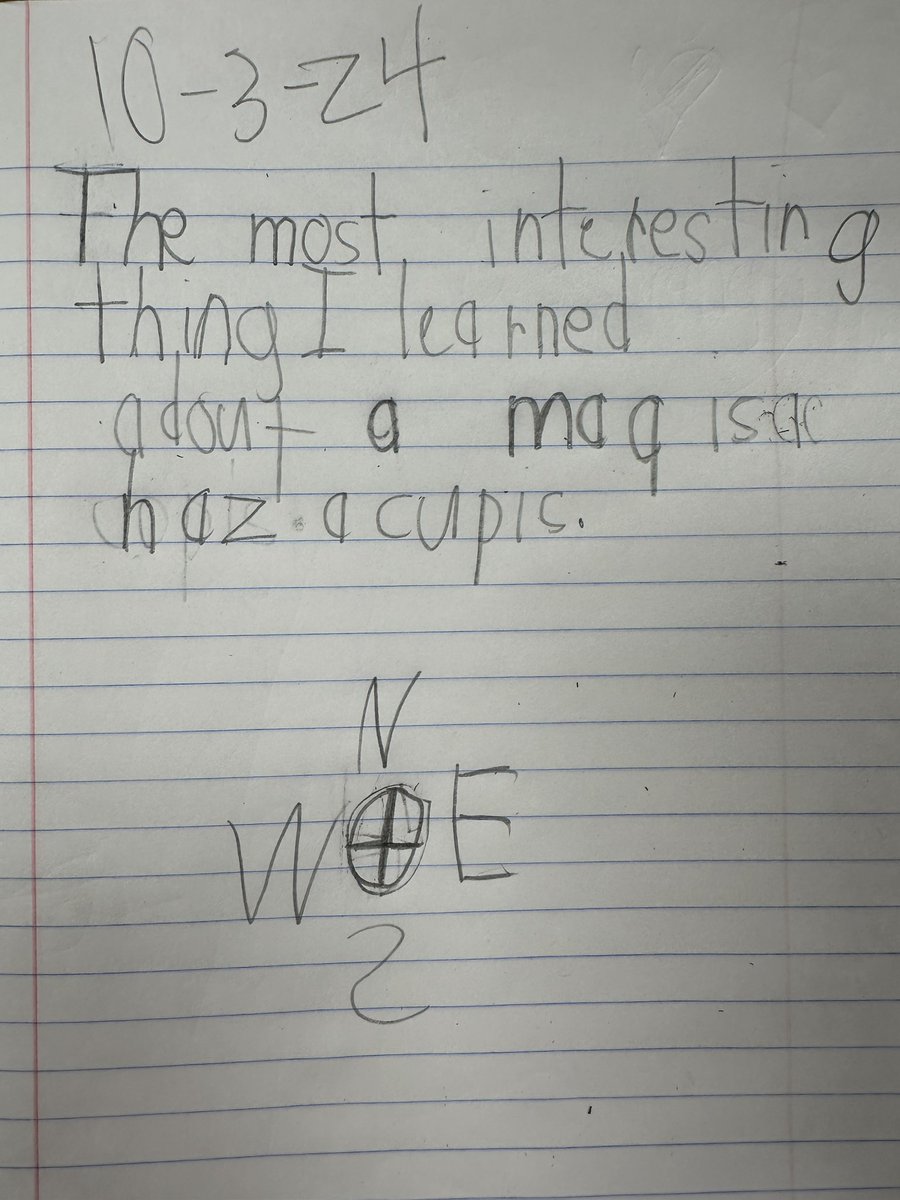 10-3-24
The most interesting
thing I learned
adout a maq is a
haz a cupis.
N
W E
S